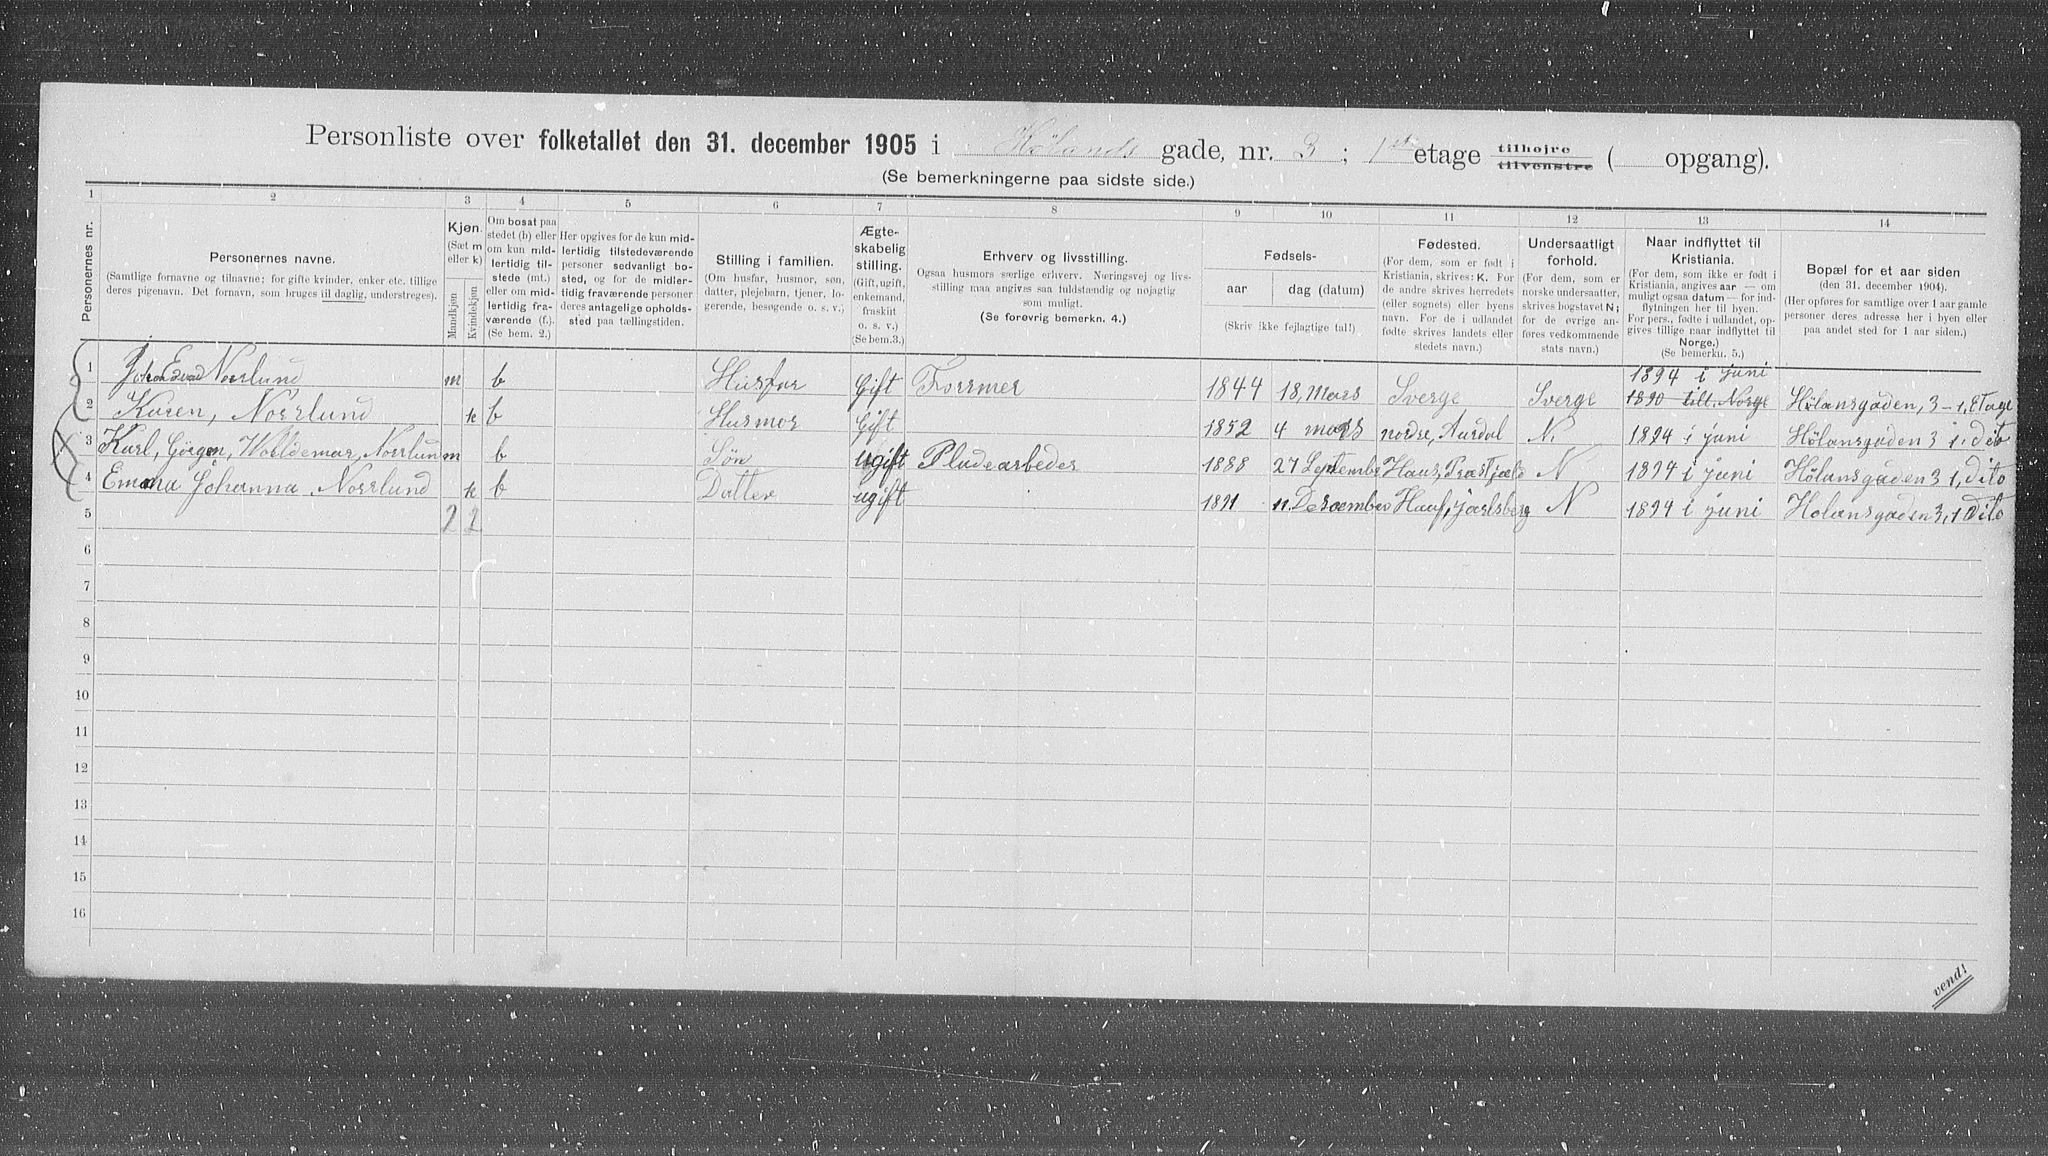 Personliste over folketallet den 31. december 1905 i Hölands gade, nr. 3 ; 1ste etage tilhøjre tilvenstre ( opgang).
(Se bemerkningerne paa sidste side.)
1 2 3 4 5 6 7 8 9 10 11 12 13 14
Personernes nr.
Personernes navne.
(Samtlige fornavne og tilnavne; for gifte kvinder, enker etc. tillige deres pigenavn. Det fornavn, som bruges til daglig, understreges).
Kjøn.
(Sæt m eller k)
Mandkjøn
Kvindekjøn
Om bosat paa stedet (b) eller om kun midlertidig tilstede (mt.) eller om midlertidig fraværende (f.). (Se bem. 2.)
Her opgives for de kun midlertidig tilstedeværende personer sedvanligt bosted, og for de midlertidig fraværende personer deres antagelige opholdssted paa tællingstiden.
Stilling i familien.
(Om husfar, husmor, søn, datter, plejebarn, tjener, logerende, besøgende o. s. v.)
Ægteskabelig stilling.
(Gift, ugift, enkemand, fraskilt o. s. v.)
(Se bem.3.)
Erhverv og livsstilling.
Ogsaa husmors særlige erhverv. Næringsvej og livsstilling maa angives saa fuldstændig og nøjagtig som muligt.
(Se forøvrig bemerkn. 4.)
Fødsels-
aar
dag (datum)
(Skriv ikke fejlagtige tal!)
Fødested.
(For dem, som er født i Kristiania, skrives: K. For de andre skrives herredets (eller sognets) eller byens navn. For de i udlandet fødte skrives landets eller stedets navn.)
Undersaatligt forhold.
(For dem, som er norske undersaatter, skrives bogstavet N; for de øvrige anføres vedkommende stats navn.)
Naar indflyttet til Kristiania.
(For dem, som ikke er født i Kristiania, angives aar — om muligt ogsaa datum — for indflytningen her til byen. For pers., fødte i udlandet, opgives tillige naar indflyttet til Norge.)
(Se bemerkn. 5.)
Bopæl for et aar siden
(den 31. december 1904).
(Her opføres for samtlige over 1 aar gamle personer deres adresse her i byen eller paa andet sted for 1 aar siden.)
1 Johan Edvad Norrlund m b Husfar Gift Forsmer 1844 18, Mars Sverge Sverge 1894 i juni 1890 till Norge Hölansgaden, 3 - 1, Etage
2 Karen, Norrlund k b Husmor Gift 1852 4 mars nordre, Aurdal N. 1894 i juni Hölansgaden 3 1. dito
3 Karl, Görgen, Woldemar, Norrlun m b Sön ugift Pladearbeder 1888 27 September N 1894 i juni Hölansgaden 3 1, dito
4 Emma Johanna Norrlund k b Datter ugift 1891 11. Desember jarlsberg N 1894 i juni Holansgaden 3, 1 Dito
5 2 2
6
7
8
9
10
11
12
13
14
15
16
vend!